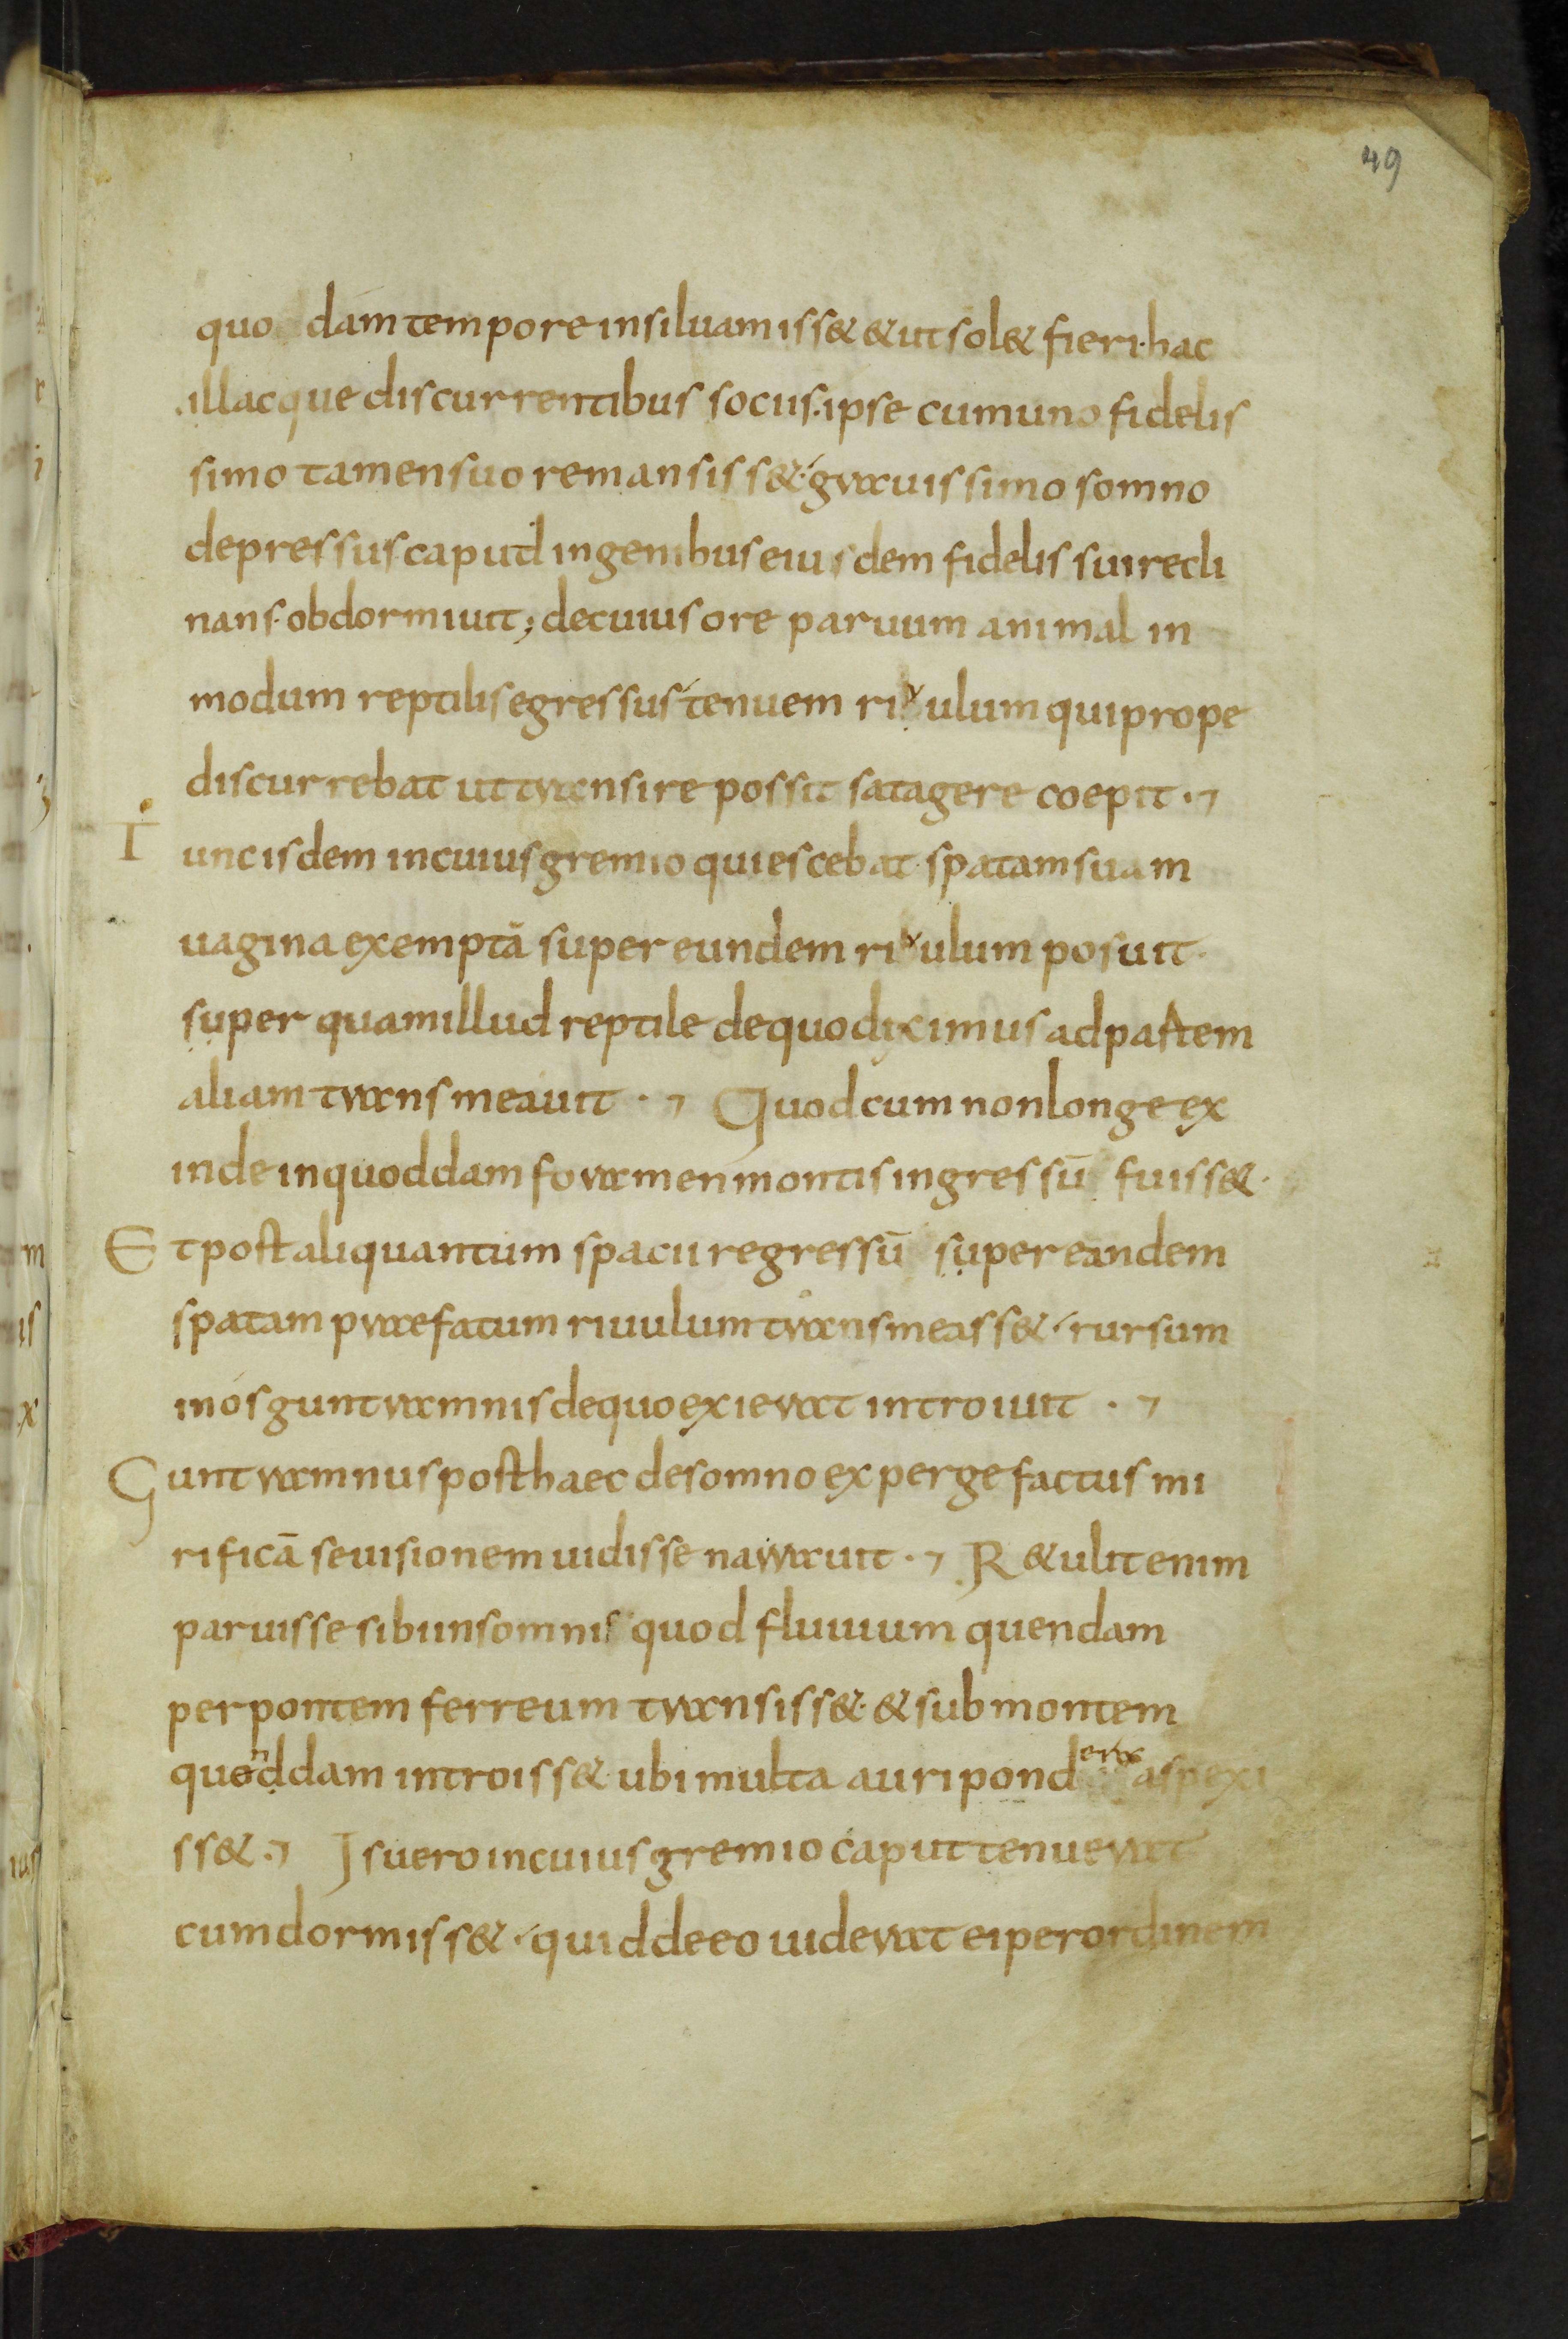 49
quo dam tempore in siluam iss& & ut sol& fieri· hac
illacque discurrentibus sociis· ipse cum uno fidelis
simo tamen suo remansiss&· grauissimo somno
depressus capud in genibus eiusdem fidelis sui recli
nans· obdormiuit; de cuius ore paruum animal in
modum reptilis egressus tenuem riuulum qui prope
discurrebat ut transire possit satagere coepit·⁊
T unc isdem in cuius gremio quiescebat· spatam suam
uagina exemptā super eundem riuulum posuit·
super quam illud reptile de quo diximus ad partem
aliam transmeauit·⁊ Quod cum non longe ex
inde in quoddam foramen montis ingressū fuiss&·
E t post aliquantum spacii regressū super eandem
spatam praefatum riuulum transmeass&· rursum
in os guntramnis de quo exierat introiuit·⁊
Guntramnus post haec de somno expergefactus mi
rificā se uisionem uidisse narrauit·⁊ R&ulit enim
paruisse sibi in somnis quod fluuium quendam
per pontem ferreum transiss&· & sub montem
quenddam introiss& ubi multa auri pondera aspexi
ss&·⁊ Is uero in cuius gremio caput tenuerat
cum dormiss&· quid de eo uiderat ei per ordinem